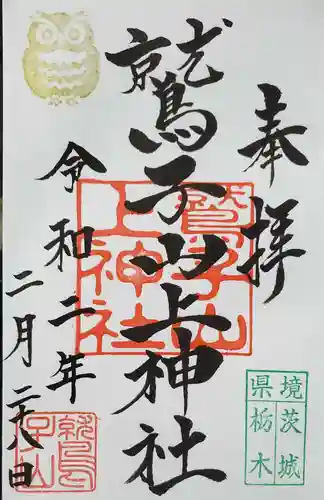 奉拝
鷲子山上神社
鷲子山
上神社
令和二年
二月二十八日
鷲
子山
境茨城
県栃木